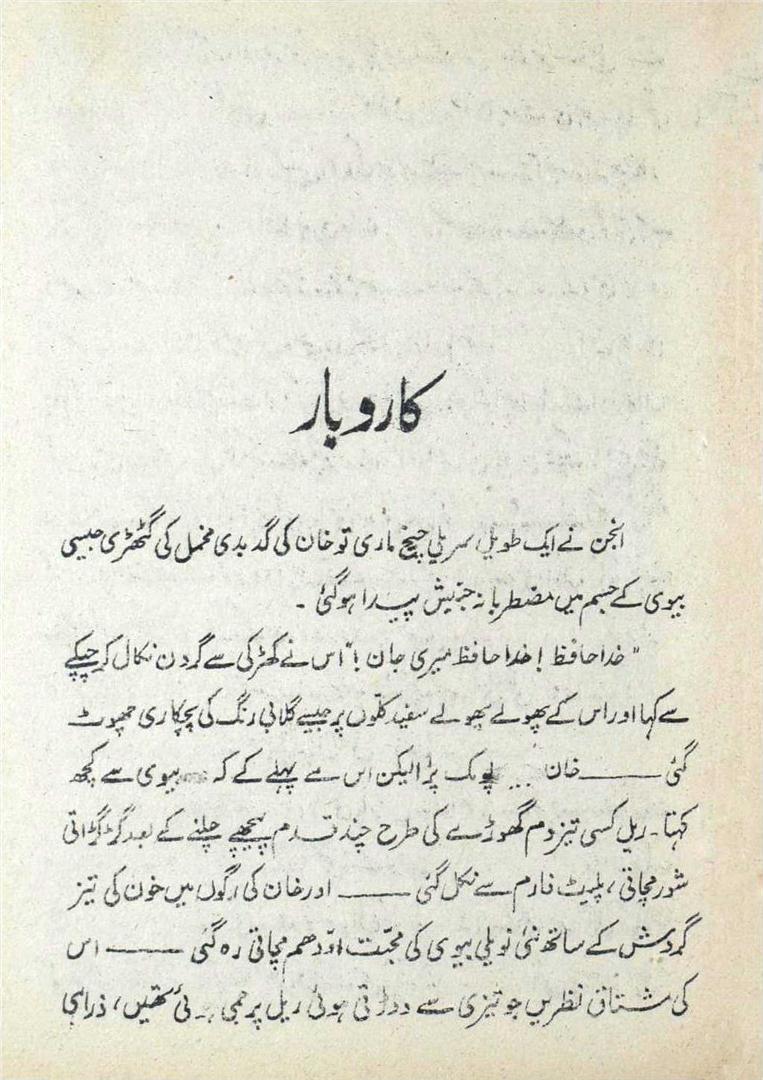 کاروبار
انجن نے ایک طویل سریلی چیخ ماری تو خان کی گدبدی مخمل کی گٹھڑی جیسی
بیوی کے جسم میں مضطربانہ جنبش پیدا ہوگئی ۔
"خدا حافظ ! خدا حافظ میری جان !" اس نے کھڑکی سے گردن نکال کر چپکے
سے کہا اور اس کے پھولے پھولے سفید کلّوں پر جیسے گلابی رنگ کی پچکاری چھوٹ
گئی ـــــــ خان ... چونک پڑا لیکن اس سے پہلے کے کہ بیوی سے کچھ
کہتا۔ ریل کسی تیز دم گھوڑے کی طرح چند قدم پیچھے چلنے کے بعد گڑگڑاتی
شور مچاتی ، پلیٹ فارم سے نکل گئی ـــــــ اور خان کی رگوں میں خون کی تیز
گردش کے ساتھ نئی نویلی بیوی کی محبّت اودھم مچاتی رہ گئی ـــــــ اس
کی مشتاق نظریں جو تیزی سے دوڑتی ہوئی ریل پر جمی ہوئی تھیں، ذرا ہی